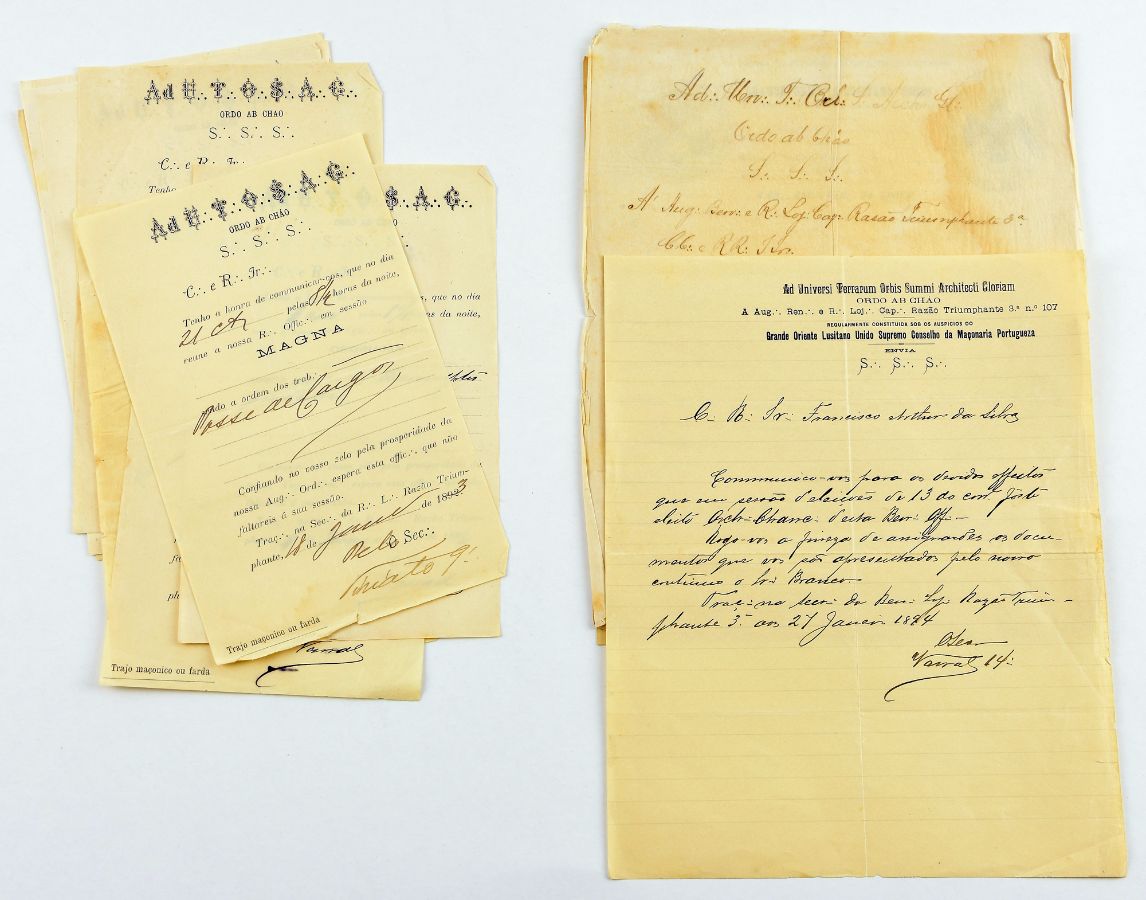 Ad U.·. T.·. O.·. S.·. A.·. G.·.
ORDO AB CHAO
S.·. S.·. S.·.
C.·. e R.·. Ir.·.
Tenho
Ad U.·. T.·. O.·. S.·. A.·. G.·.
ORDO AB CHÁO
S.·. S.·. S.·.
C.·. e R.·. Ir.·.
Tenho a honra de communicar-vos, que no dia
21 pelas 8½ horas da noite,
reune a nossa R.·. Offic.·. em sessão
MAGNA
sendo a ordem dos trab.·.
Posse de Cargos
Confiando no vosso zelo pela prosperidade da
nossa Aug.·. Ord.·. espera esta offic.·. que não
faltareis á sua sessão.
Traç.·. na Sec.·. da R.·. L.·. Razão Trium-
phante, 18 de de 1893
O Sec.·.
Trajo maçonico ou farda
S.·. A.·. G.·.
CHAO
S.·.
que no dia
horas da noite,
Trajo maçonico ou farda
Varral
Ad.·. Un.·. T.·. Orb.·. S.·. Arch.·. Gl.·.
Ordo ab Cháo
S.·. S.·. S.·.
A Aug.·. Ben.·. e R.·. Loj.·. Cap.·. Rasão Triumphante 3ª
CC.·. e RR.·. Iir.·.
Ad Universi Terrarum Orbis Summi Architecti Gloriam
ORDO AB CHAO
A Aug.·. Ren.·. e R.·. Loj.·. Cap.·. Razão Triumphante 3.ª n.º 107
REGULARMENTE CONSTITUIDA SOB OS AUSPICIOS DO
Grande Oriente Lusitano Unido Supremo Conselho da Maçonaria Portugueza
ENVIA
S.·. S.·. S.·.
C. R. Ir. Francisco Arthur da Silva
Communico-vos para os devidos effeitos
que em sessão d'eleições de 13 do corr. foste
eleito Arch. Chanc. desta Ben. Off.
Rogo-vos a fineza de assignardes os docu-
mentos que vos são apresentados pelo nosso
continuo o Ir. Branco.
Traç. na Secr. da Ben. Loj. Razão Trium-
phante 3ª aos 27 Janeiro 1894
O Sec.
Varral 14.·.